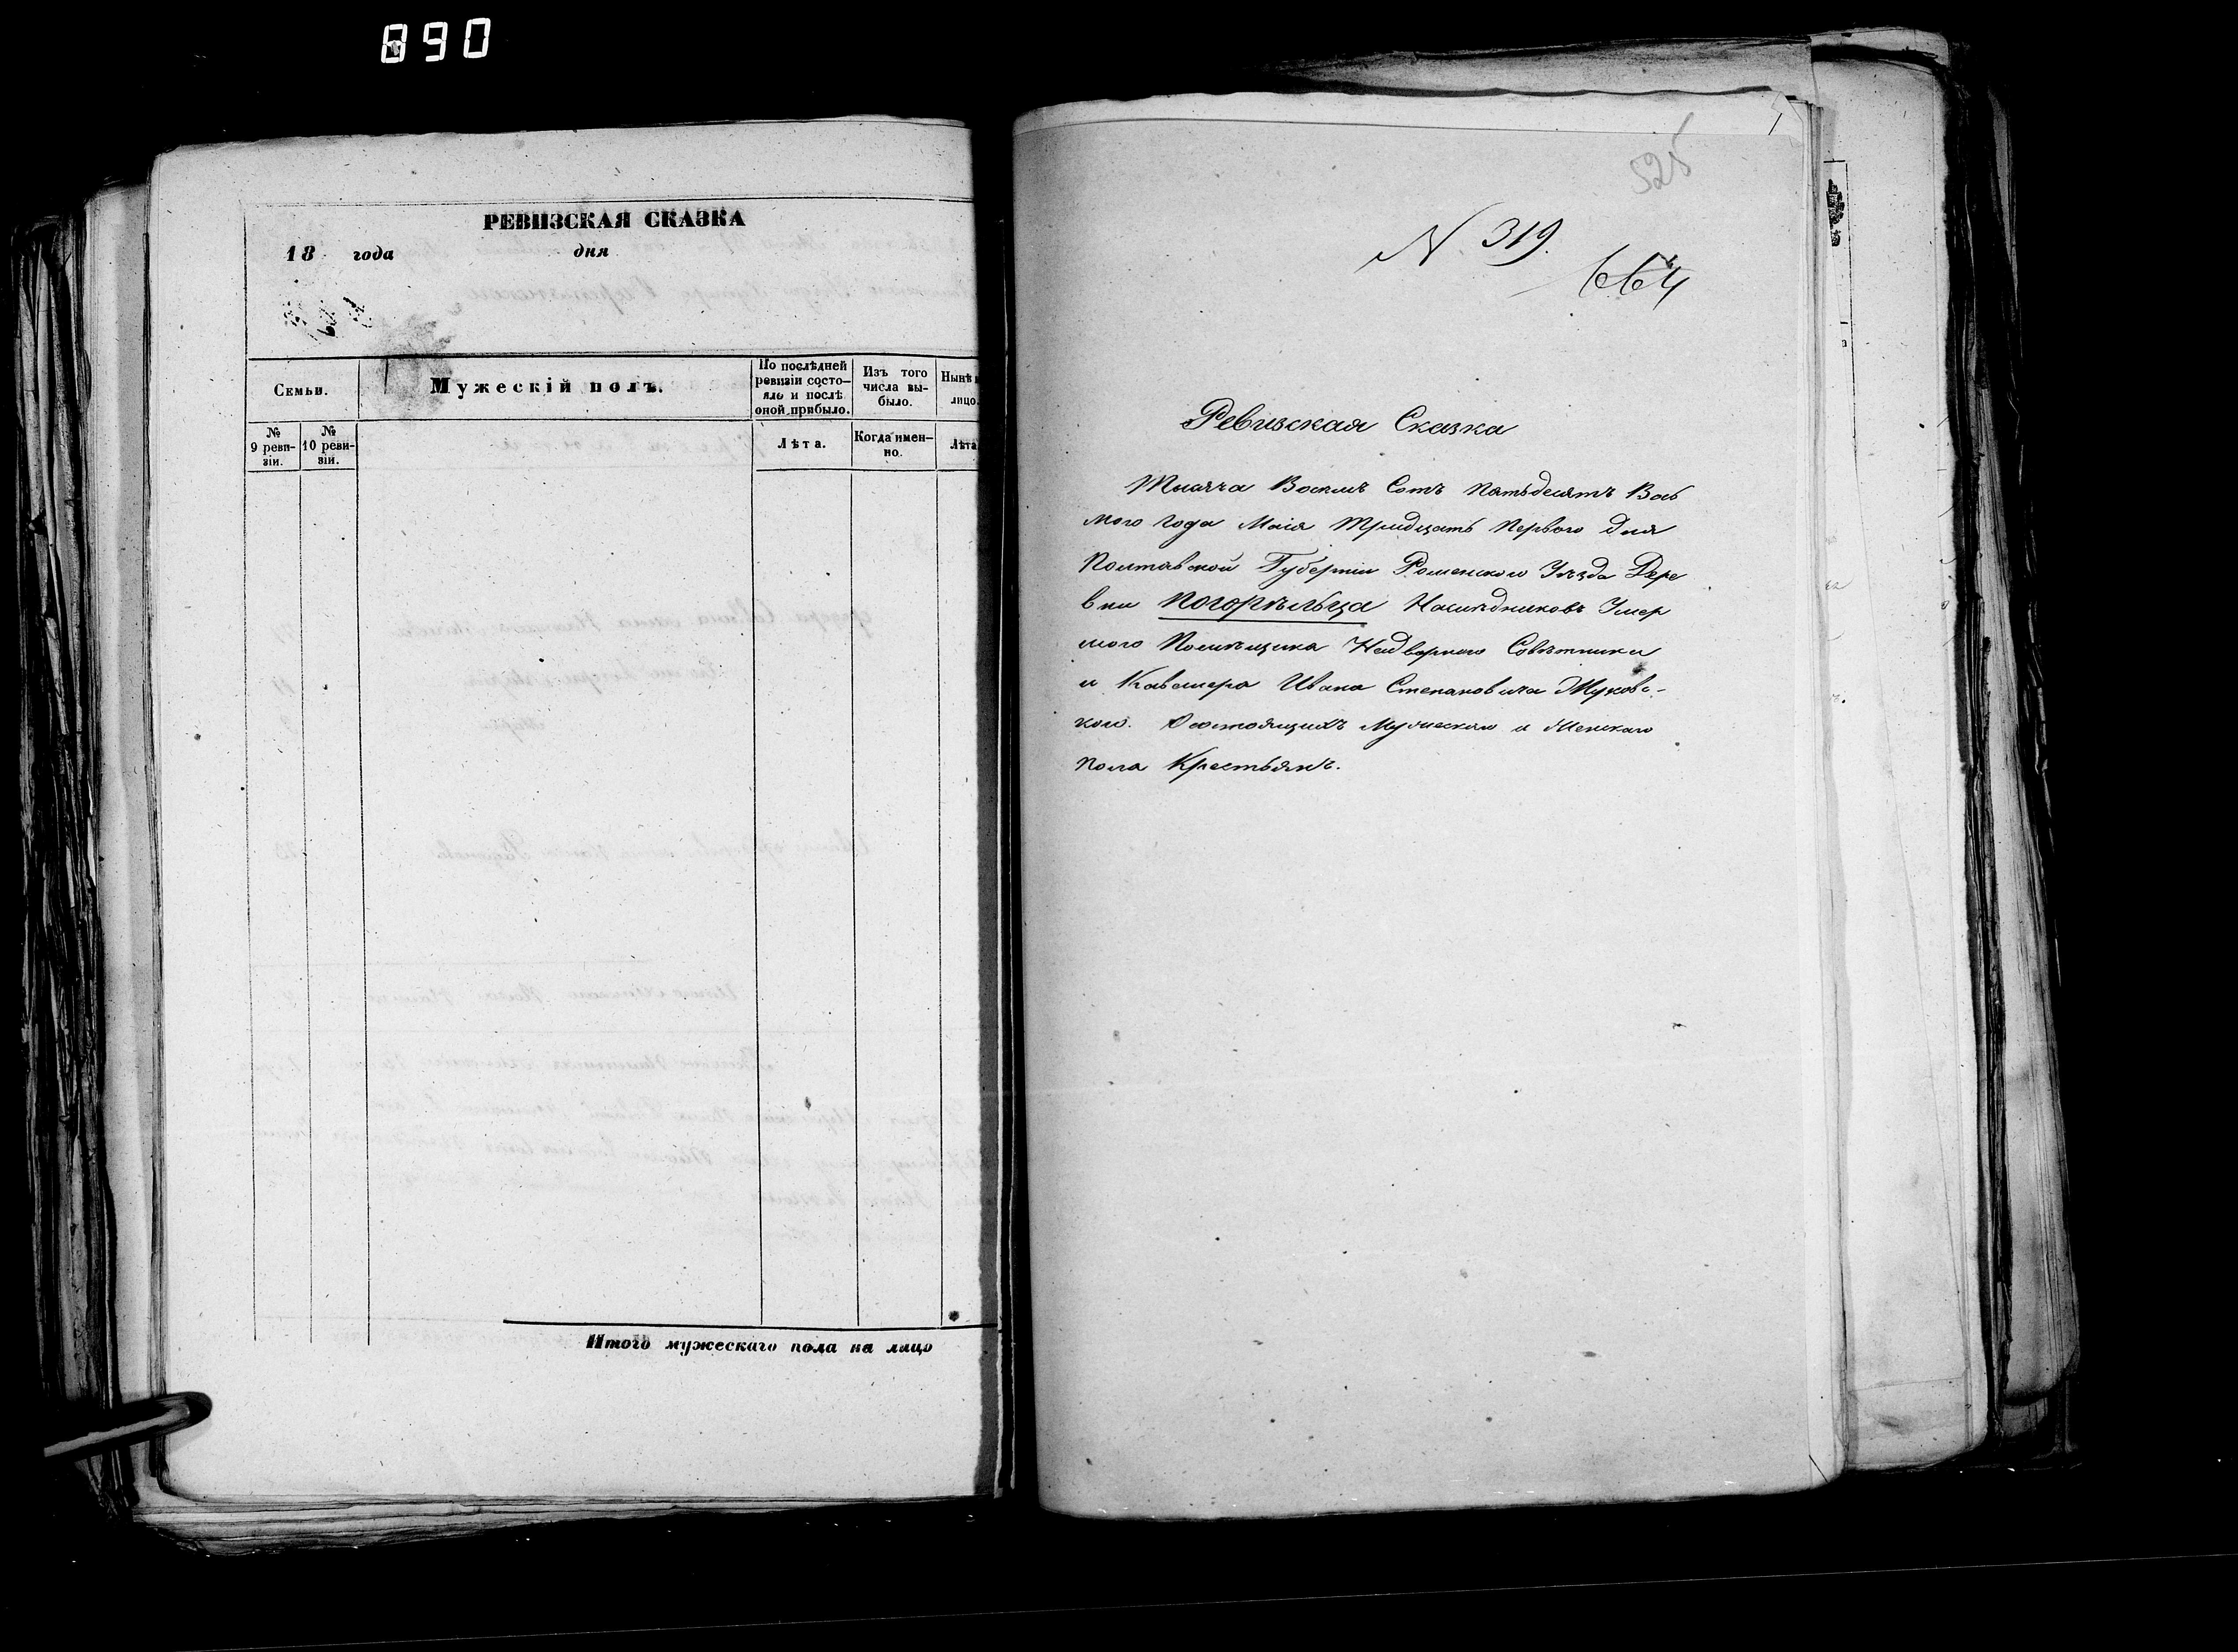 890
РЕВИЗСКАЯ СКАЗКА
18 года дня
Семьи.
Мужескій полъ.
По послѣдней
ревизіи состо-
яло и послѣ
оной прибыло.
Изъ того
числа вы-
было.
Нынѣ
лицо.
№
9 реви-
зіи.
№
10 реви-
зіи.
Лѣта.
Когда имен-
но.
Лѣта
Итого мужескаго пола на лицо
525
N. 319.
664
Ревизская Сказка
Тысяча Восемь Сотъ Пятьдесятъ Вось
мого года Маія Тридцать Первого дня
Полтавской Губерніи Роменского Уѣзда Дере
вни Погорѣльца Наслѣдниковъ Умер
шого Помѣщика Надворного Совѣтника
и Кавалера Ивана Степановича Жуковс-
кого. О состоящихъ Мужеского и Женскаго
пола Крестьянъ.